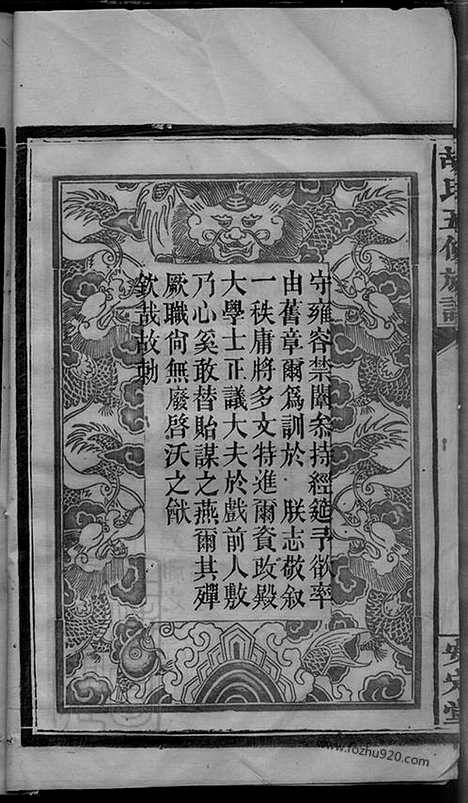 胡氏五修族譜
安定堂
守雍容禁闥參持經筵予欲率
由舊章爾爲訓於 朕志敬叙
一秩庸將多文特進爾資政殿
大學士正議大夫於戲前人敷
乃心奚敢替貽謀之燕爾其殫
厥職尚無廢啓沃之猷
欽哉故勅
www.fozhu920.com